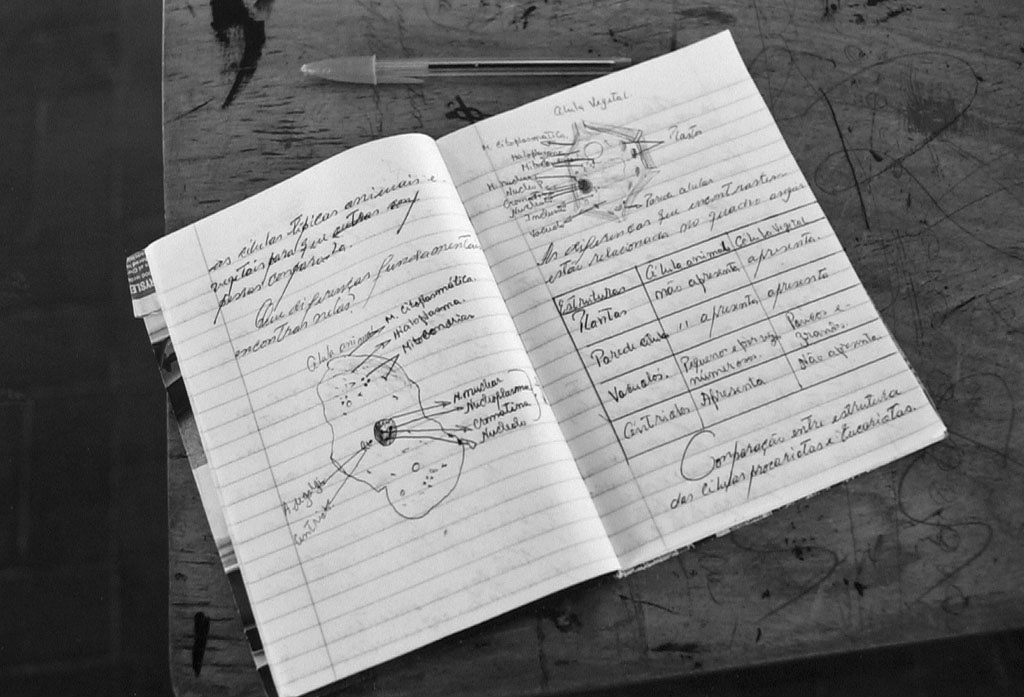 as células típicas animais e
vegetais para que
possas compara-la.
Que diferenças fundamentais
encontras nelas?
Célula animal
M. Citoplasmática.
Hialoplasma.
Mitocondrias
M. nuclear
Nucleoplasma
Cromatina
Nucleolo
Centriolos
Célula Vegetal
M. Citoplasmática.
Hialoplasma
M. nuclear
Nucleolo
Vacuolo
Parede celular
As diferenças que encontrastem
estão relacionada no quadro
Estruturas Célula animal Célula Vegetal
Plantas não apresenta apresenta.
Parede celular 11 apresenta apresenta
Vacuolos. Pequeno e
numerosos. Poucos e
grandes.
Centriolos Apresenta Não apresenta
Comparação entre estrutura
das células procariotas e Eucariotas.